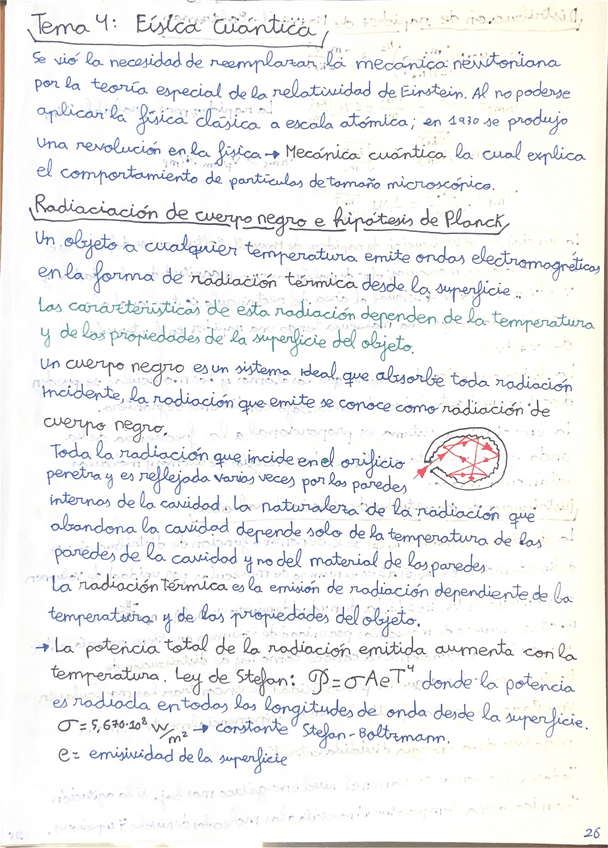 Tema 4: Física Cuántica
Se vió la necesidad de reemplazar la mecánica newtoniana
por la teoría especial de la relatividad de Einstein. Al no poderse
aplicar la física clásica a escala atómica; en 1930 se produjo
una revolución en la física → Mecánica cuántica la cual explica
el comportamiento de partículas de tamaño microscópico.
Radiaciación de cuerpo negro e hipótesis de Planck
Un objeto a cualquier temperatura emite ondas electromagnéticas
en la forma de radiación térmica desde la superficie.
Las características de esta radiación dependen de la temperatura
y de las propiedades de la superficie del objeto.
Un cuerpo negro es un sistema ideal que absorbe toda radiación
incidente, la radiación que emite se conoce como radiación de
cuerpo negro.
Toda la radiación que incide en el orificio
penetra y es reflejada varias veces por las paredes
internas de la cavidad. La naturaleza de la radiación que
abandona la cavidad depende solo de la temperatura de las
paredes de la cavidad y no del material de las paredes.
La radiación térmica es la emisión de radiación dependiente de la
temperatura y de las propiedades del objeto.
→ La potencia total de la radiación emitida aumenta con la
temperatura. Ley de Stefan: P=σAeT⁴ donde la potencia
es radiada en todas las longitudes de onda desde la superficie.
σ=5,670·10⁸ W/m² → constante Stefan-Boltzmann.
e= emisividad de la superficie
26